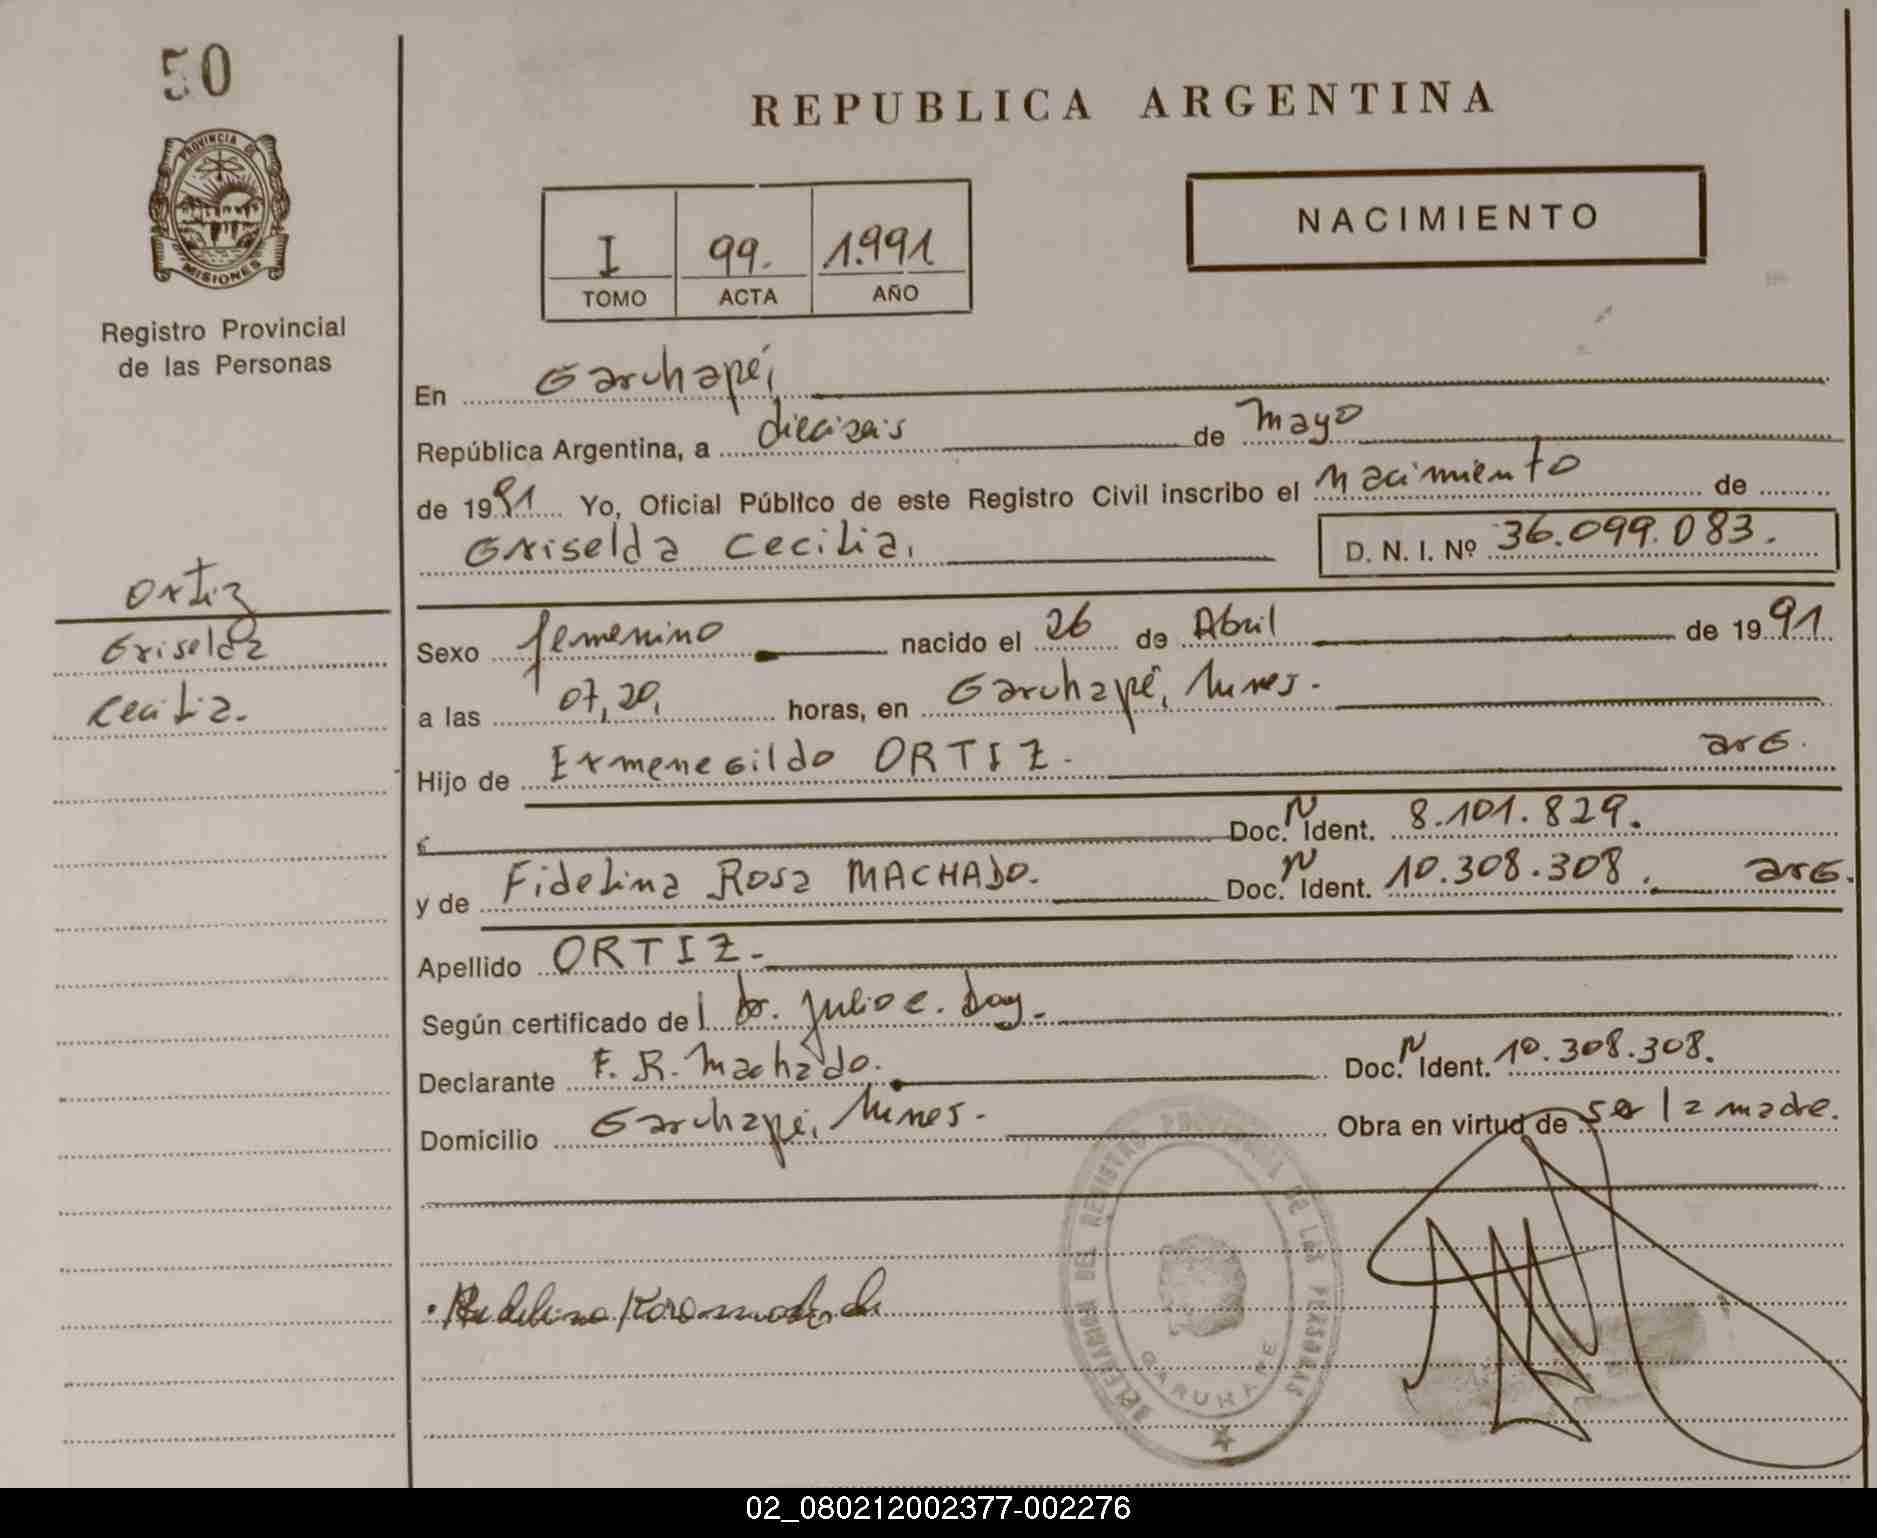 50
PROVINCIA DE
MISIONES
Registro Provincial
de las Personas
Ortiz
Griselda
Cecilia.
REPUBLICA ARGENTINA
I 99. 1.991
TOMO ACTA AÑO
NACIMIENTO
En Garuhapé,
República Argentina, a dieciseis de mayo
de 1991 Yo, Oficial Público de este Registro Civil inscribo el nacimiento de
Griselda Cecilia, D. N. I. Nº 36.099.083.
Sexo femenino nacido el 26 de Abril de 1991
a las 07,20, horas, en Garuhapé, Mnes.
Hijo de Ermenegildo ORTIZ. arg.
Doc. N Ident. 8.101.829.
y de Fidelina Rosa MACHADO. Doc. N Ident. 10.308.308. arg.
Apellido ORTIZ.
Según certificado del Dr. Julio C. Doy.
Declarante F. R. Machado. Doc. N Ident. 10.308.308.
Domicilio Garuhapé, Mnes. Obra en virtud de ser la madre.
DELEGACION DEL REGISTRO PROVINCIAL DE LAS PERSONAS
GARUHAPE
02_080212002377-002276